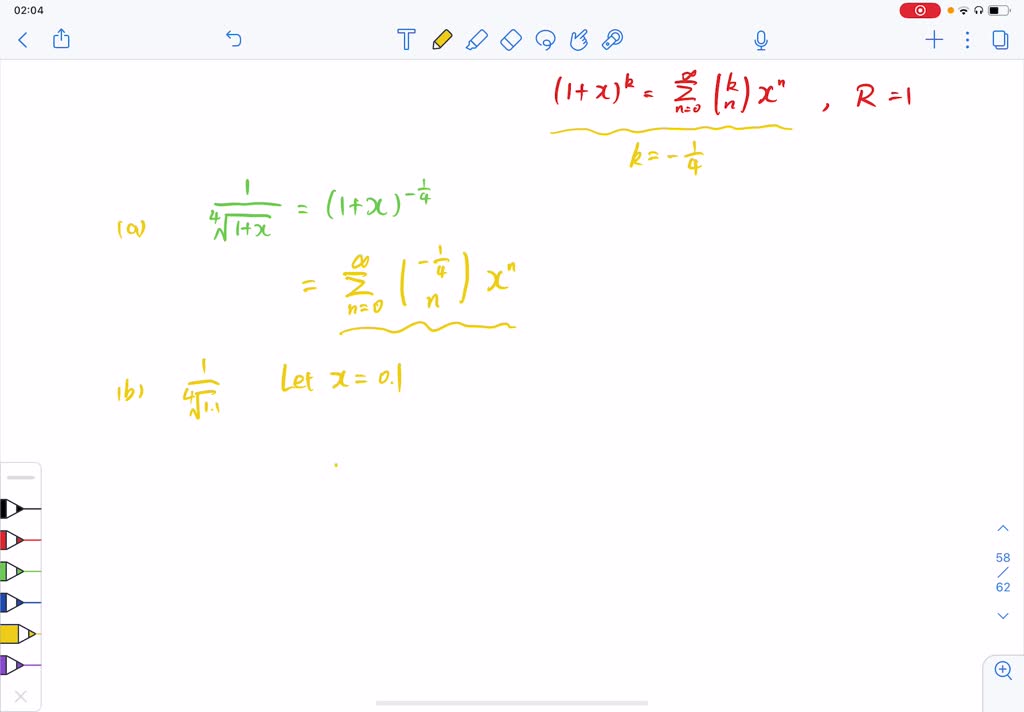 02:04
(1+x)^k = ∑_{n=0}^{∞} (k n) x^n , R = 1
k = -1/4
(a) 1/∜(1+x) = (1+x)^{-1/4}
= ∑_{n=0}^{∞} (-1/4 n) x^n
(b) 1/∜1.1 Let x = 0.1
58
/
62